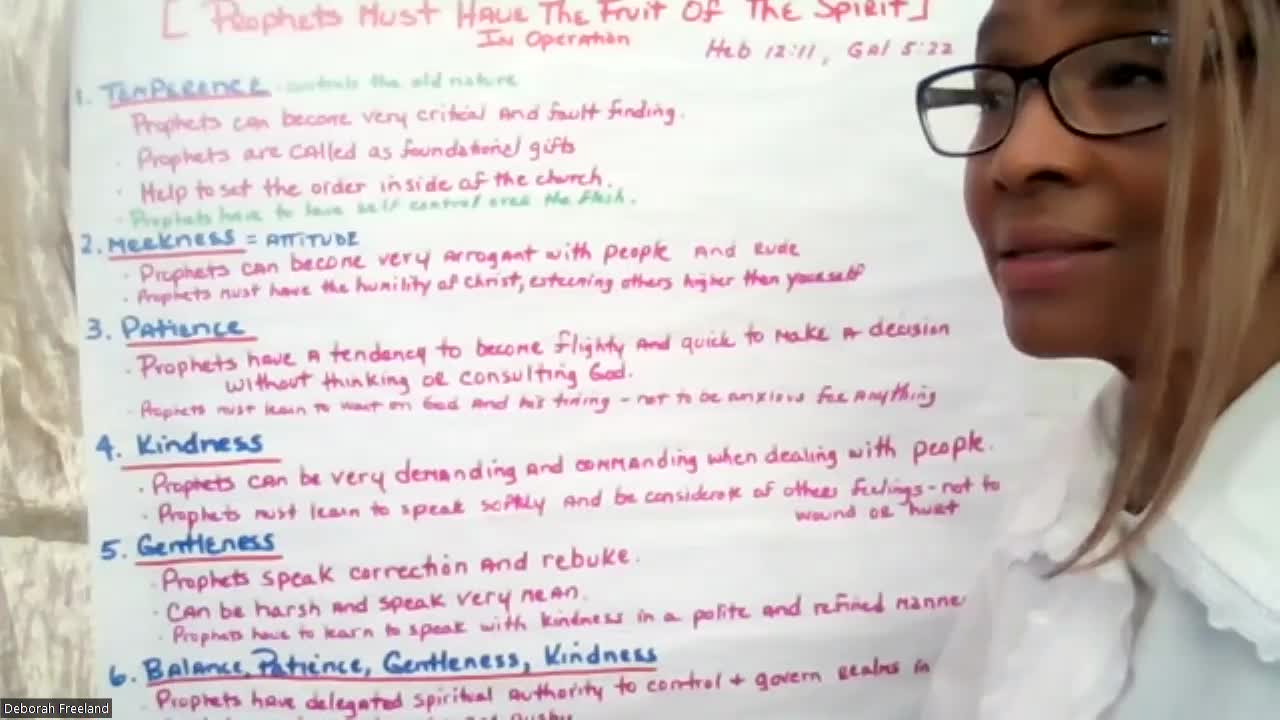 [ Prophets Must Have The Fruit Of The Spirit ]
In Operation
Heb 12:11, Gal 5:22
1. Temperence - controls the old nature
Prophets can become very critical And fault finding.
· Prophets are called as foundational gifts
· Help to set the order inside of the church.
· Prophets have to have self control over the flesh.
2. Meekness = Attitude
· Prophets can become very Arrogant with people And Rude
· Prophets must have the humility of Christ, esteeming others higher then yourself
3. Patience
· Prophets have A tendency to become flighty And quick to make A decision
without thinking or consulting God.
· Prophets must learn to wait on God And his timing - not to be anxious for Anything
4. Kindness
· Prophets can be very demanding and commanding when dealing with people.
· Prophets must learn to speak softly And be considerate of others feelings - not to
wound or hurt
5. Gentleness
· Prophets speak correction And rebuke.
· Can be harsh And speak very mean.
· Prophets have to learn to speak with kindness in a polite and refined manner
6. Balance, Patience, Gentleness, Kindness
· Prophets have delegated spiritual Authority to control + govern realms in
Deborah Freeland